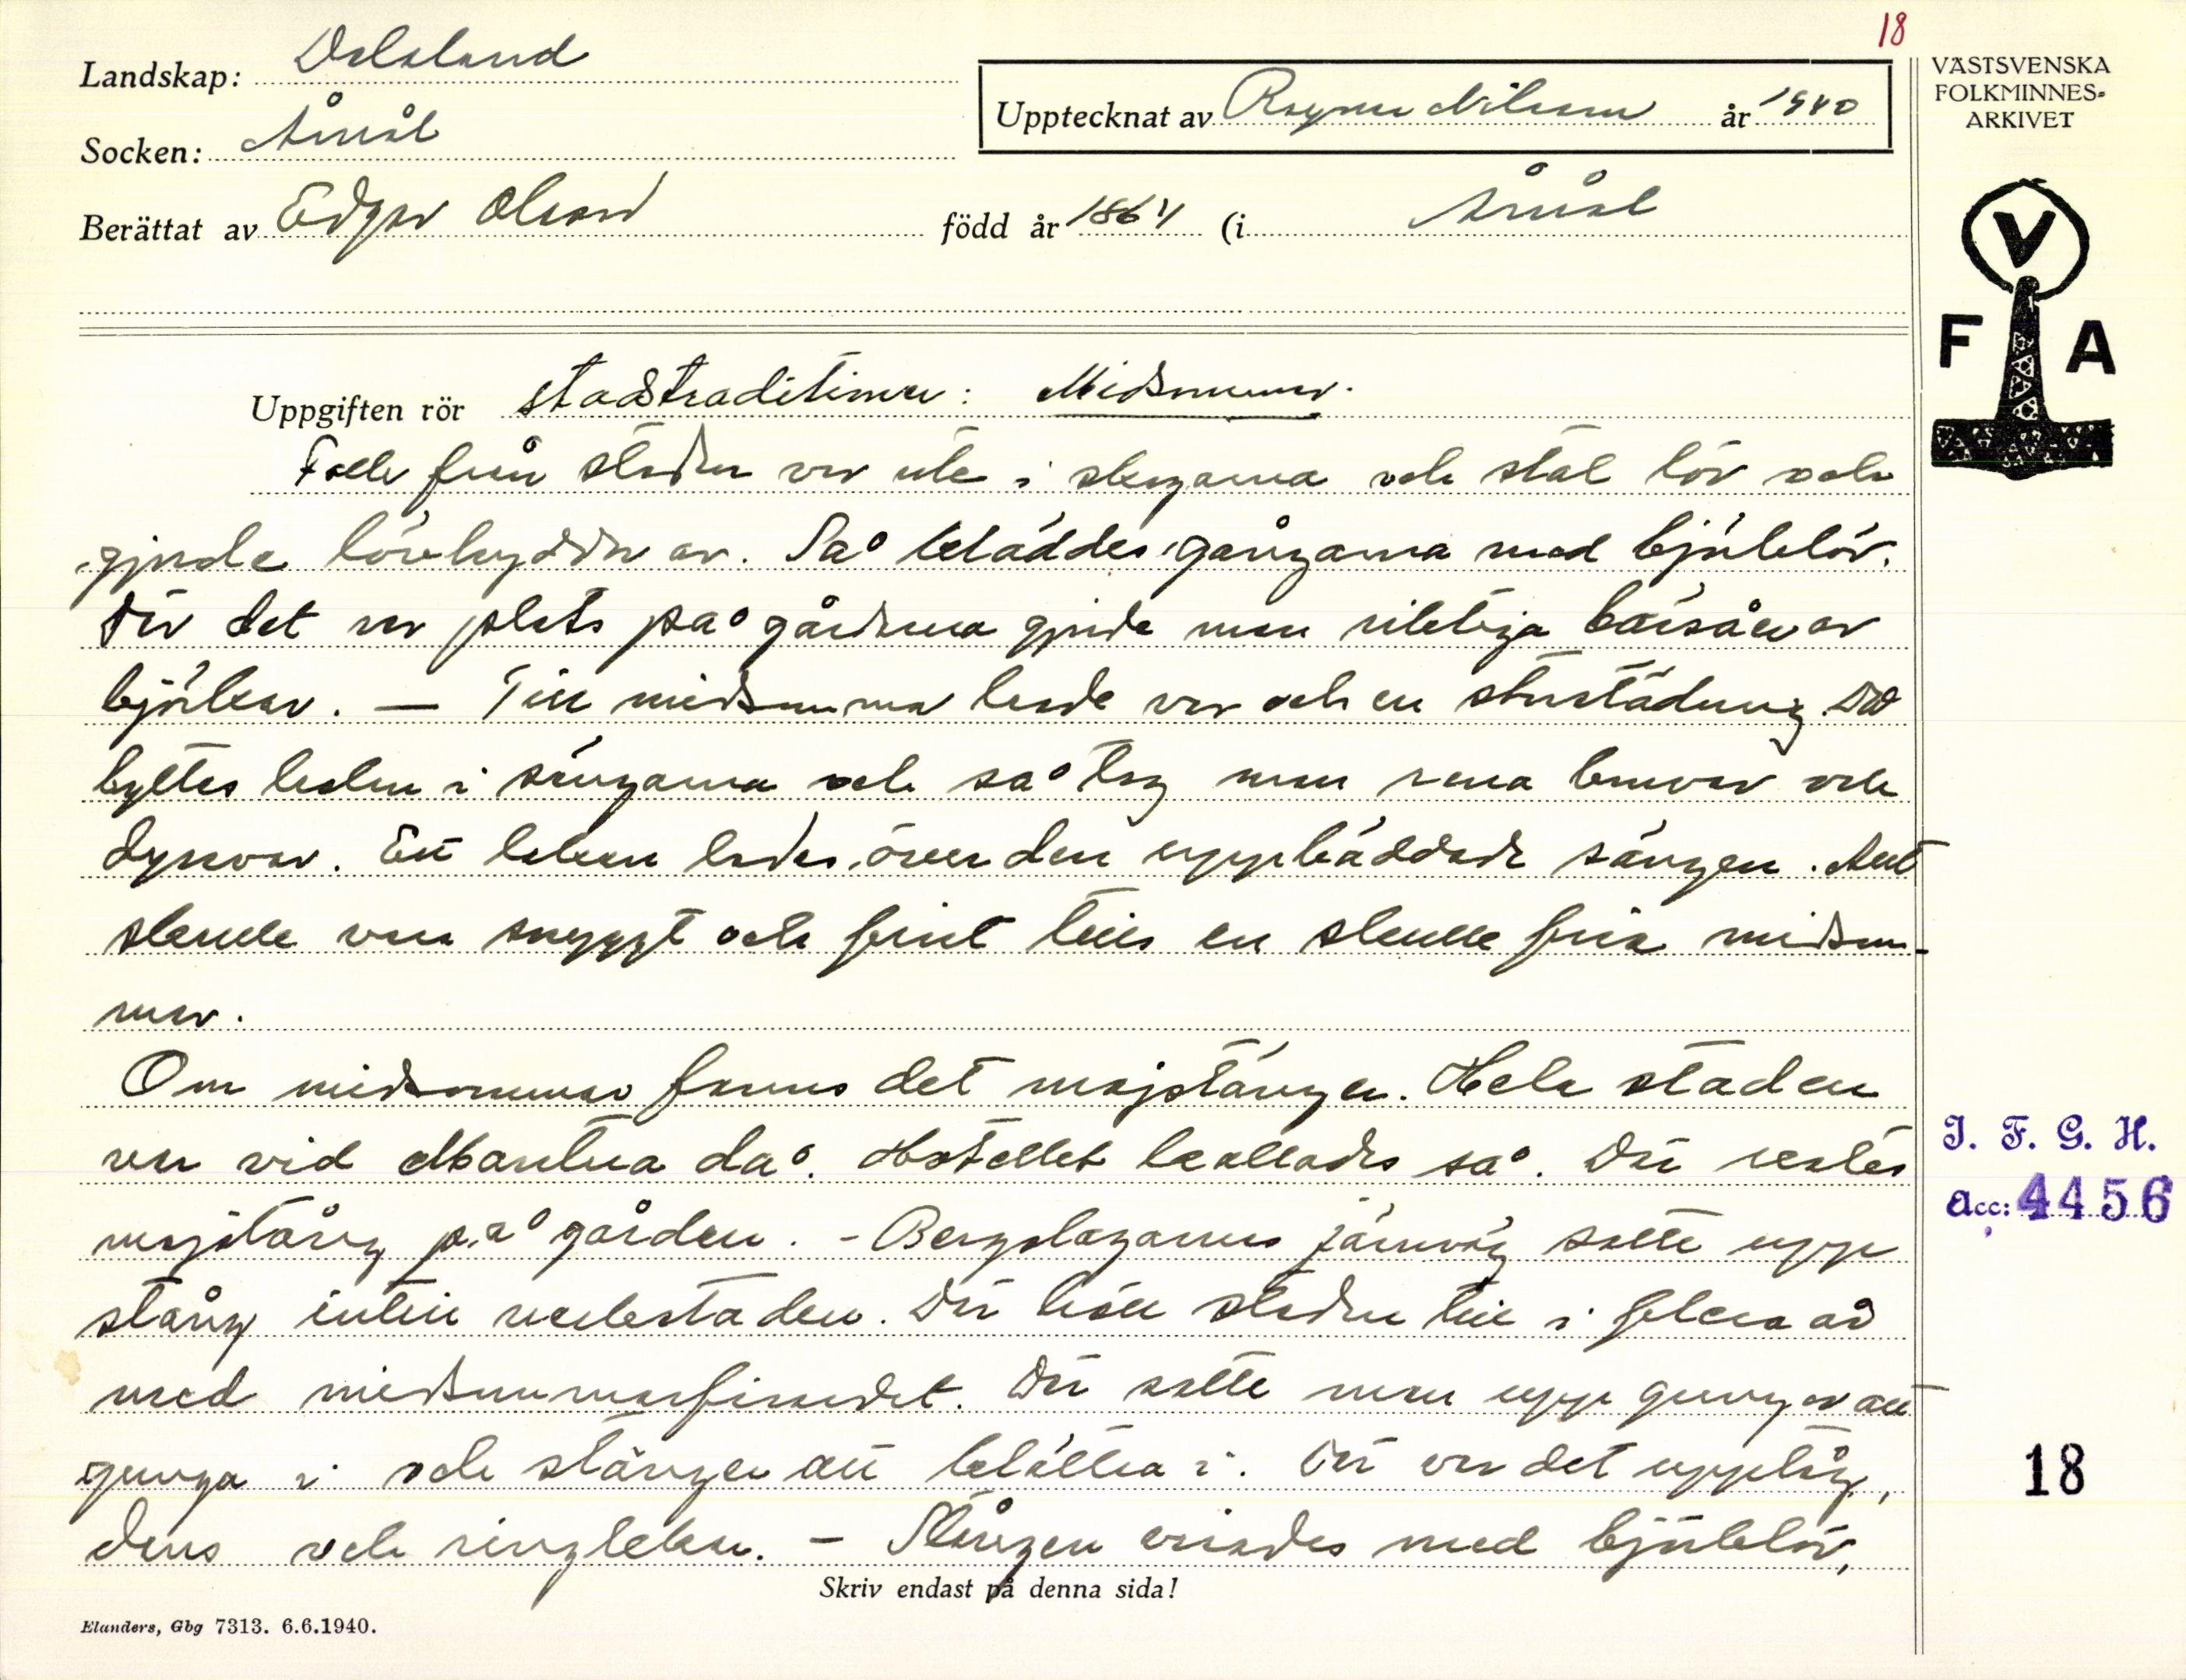 18
Landskap: Dalsland
Socken: Åmål
Upptecknat av Ragnar Nilsson år 1940
Berättat av Edgar Olsson född år 1864 (i Åmål
VÄSTSVENSKA
FOLKMINNES-
ARKIVET
V
F A
Uppgiften rör stadstraditioner: Midsommar.
Folk från staden var ute i skogarna och stal löv och
gjorde lövhyddor av. Så beläddes gångarna med björklöv.
Där det var plats på gårdarna gjorde man riktiga bärsåer av
björkar. — Till midsommar hade var och en storstädning. Då
byttes halm i sängarna och så tog man rena bruvar och
dynvar. Ett lakan lades över den uppbäddade sängen. Allt
skulle vara snyggt och fint tills en skulle fira midsom-
mar.
Om midsommar fanns det majstänger. Hela staden
var vid Mantua då. Hotellet kallades så. Där restes
majstång på gården. - Bergslagarnas järnväg satte upp
stång intill verkstaden. Där höll staden till i flera år
med midsommarfirandet. Där satte man upp gungor att
gunga i och stänger att klättra i. Där var det upptåg,
dans och ringlekar. - Stången virades med björklöv,
Skriv endast på denna sida!
Elanders, Gbg 7313. 6.6.1940.
I. F. G. H.
Acc: 4456
18